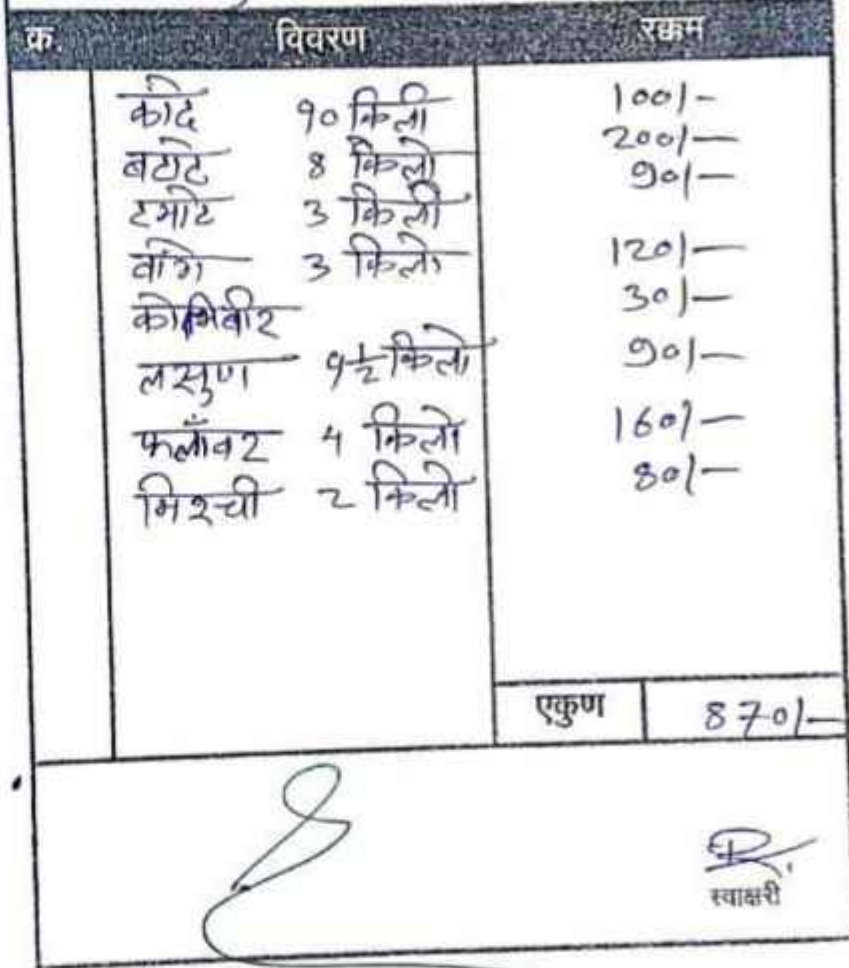 क्र. विवरण रक्कम
कांदे १० किलो 100/-
बटाटे 8 किलो 200/-
टमाटे 3 किलो 90/-
वांगे 3 किलो 120/-
कोथिंबीर 30/-
लसुण १½ किलो 90/-
फ्लॉवर 4 किलो 160/-
मिरची 2 किलो 80/-
एकुण 870/-
स्वाक्षरी